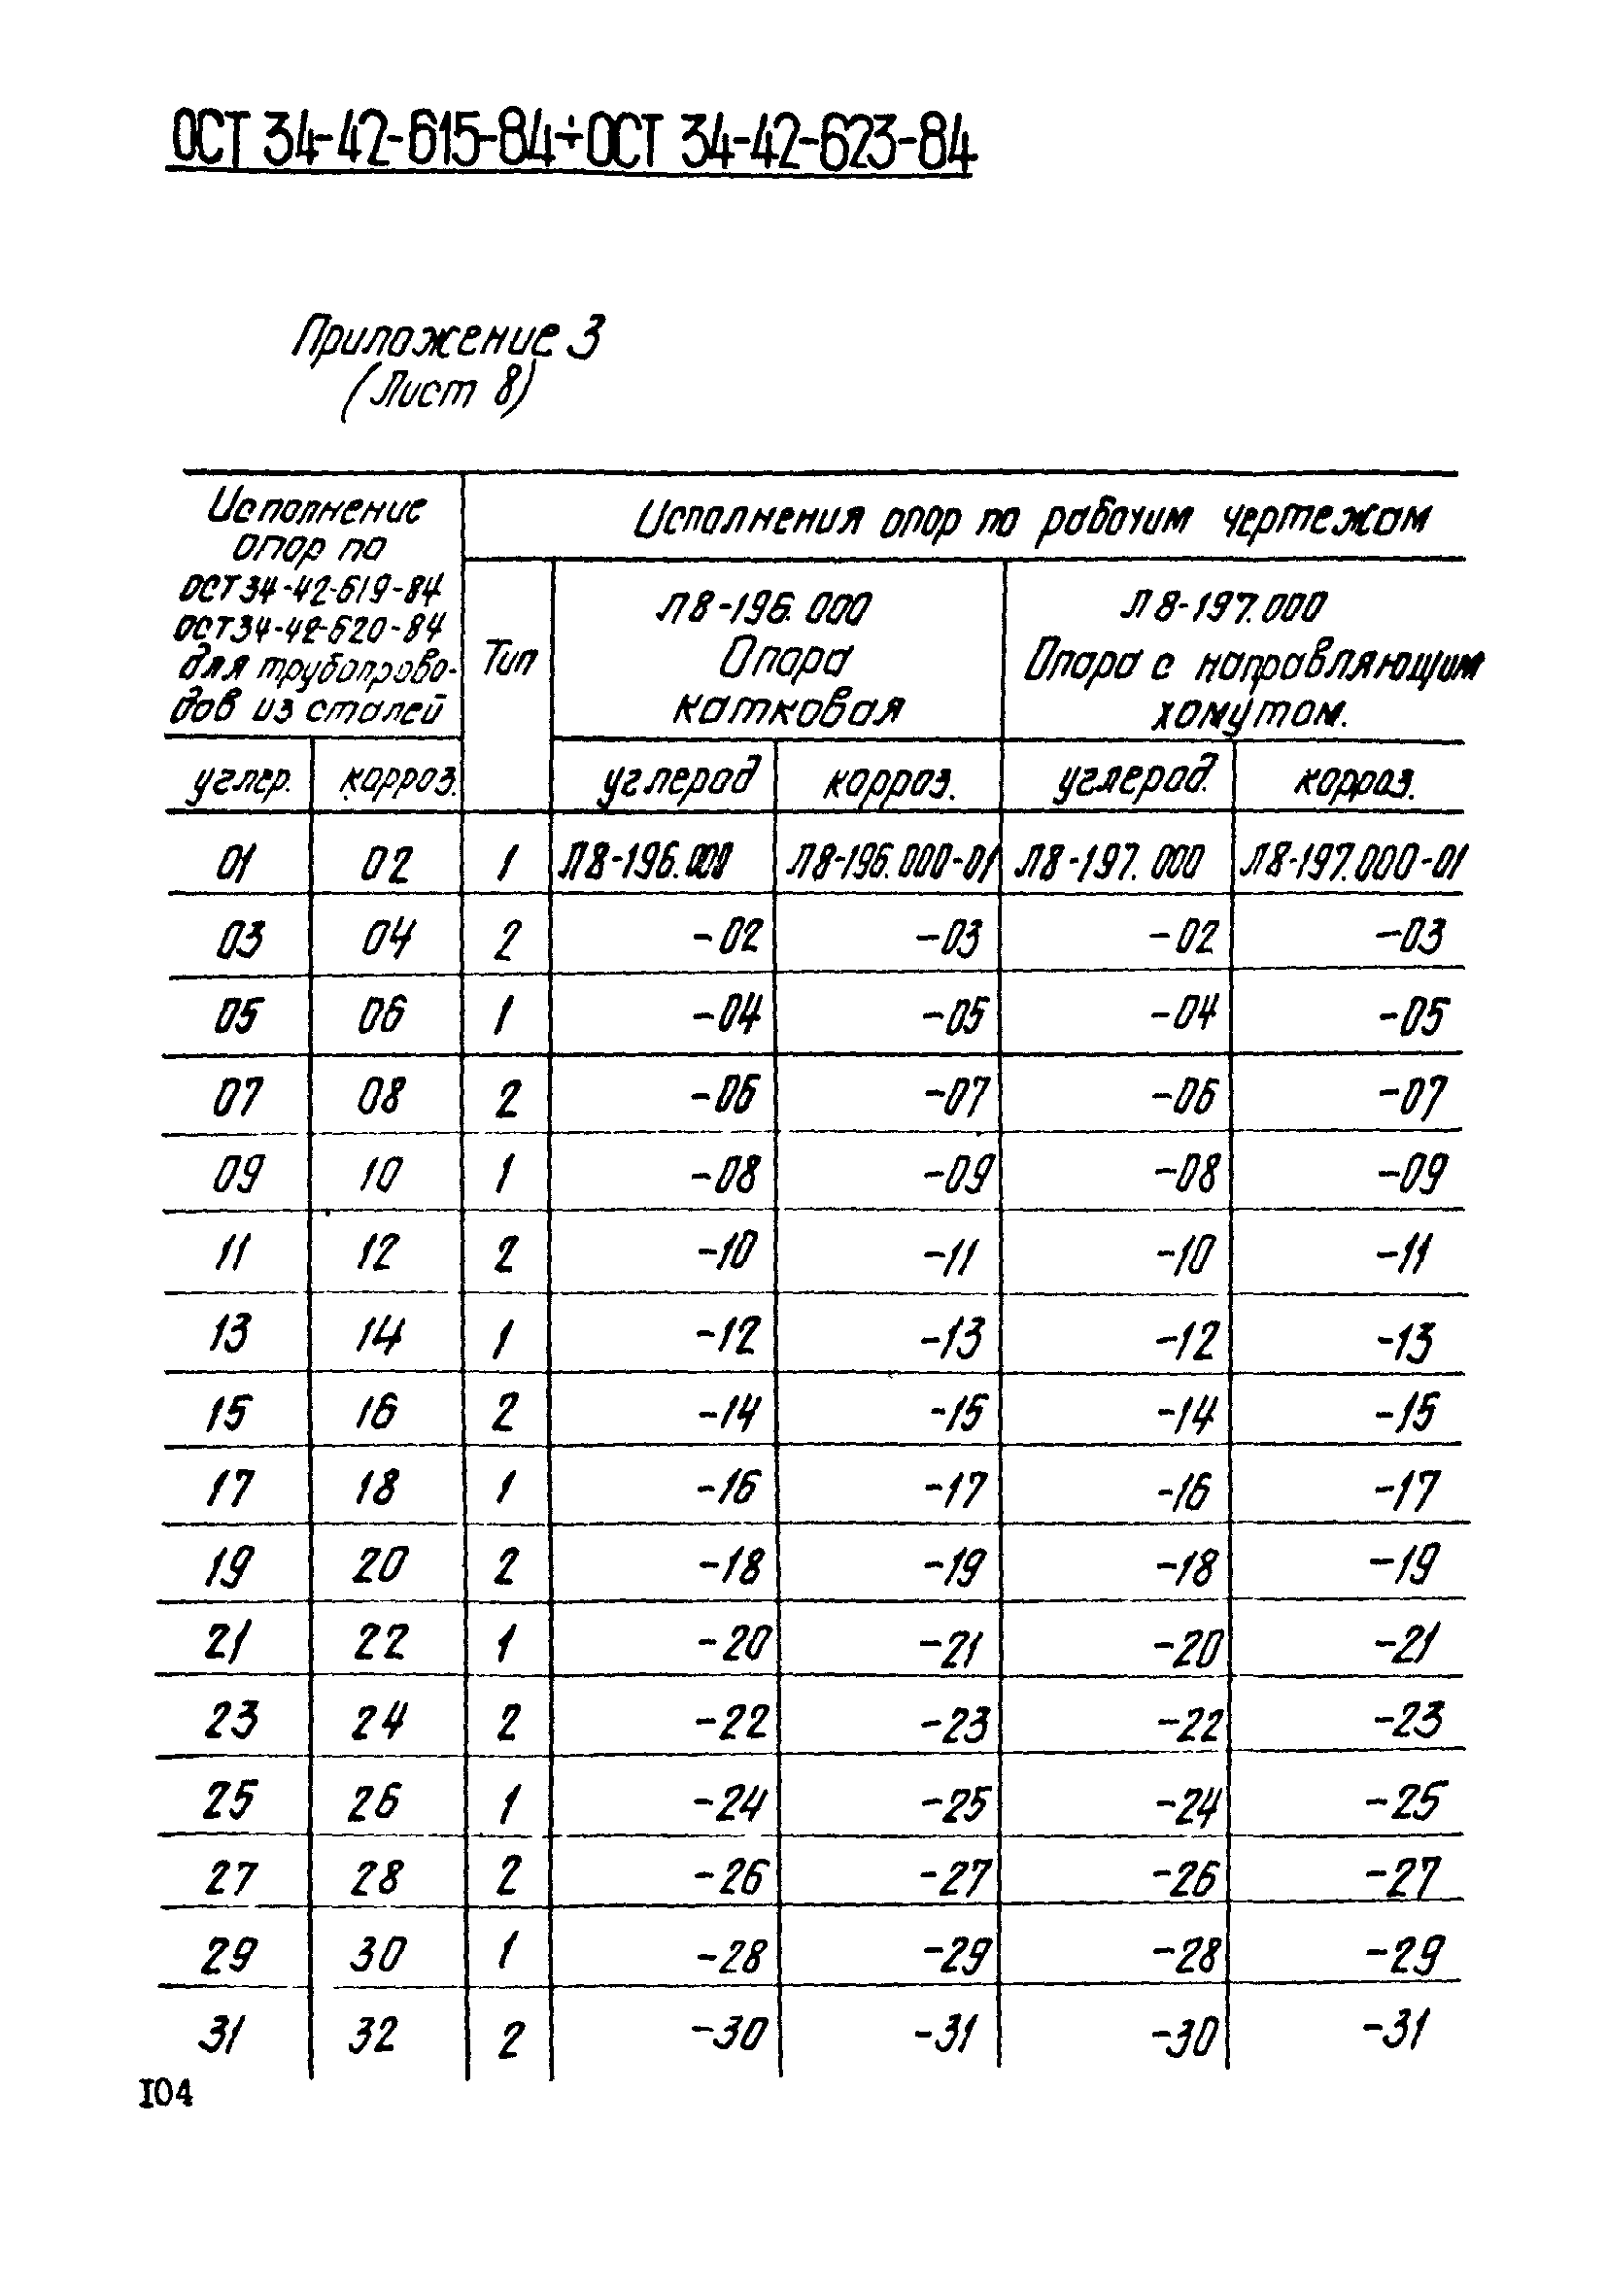 ОСТ 34-42-615-84÷ОСТ 34-42-623-84
Приложение 3
(Лист 8)
Исполнение опор по ОСТ 34-42-619-84 ОСТ 34-42-620-84 для трубопрово- дов из сталей
Исполнения опор по рабочим чертежам
Тип
Л8-196.000 Опора катковая
Л8-197.000 Опора с направляющим хомутом.
углер. корроз. углерод корроз. углерод. корроз.
01 02 1 Л8-196.000 Л8-196.000-01 Л8-197.000 Л8-197.000-01
03 04 2 -02 -03 -02 -03
05 06 1 -04 -05 -04 -05
07 08 2 -06 -07 -06 -07
09 10 1 -08 -09 -08 -09
11 12 2 -10 -11 -10 -11
13 14 1 -12 -13 -12 -13
15 16 2 -14 -15 -14 -15
17 18 1 -16 -17 -16 -17
19 20 2 -18 -19 -18 -19
21 22 1 -20 -21 -20 -21
23 24 2 -22 -23 -22 -23
25 26 1 -24 -25 -24 -25
27 28 2 -26 -27 -26 -27
29 30 1 -28 -29 -28 -29
31 32 2 -30 -31 -30 -31
104